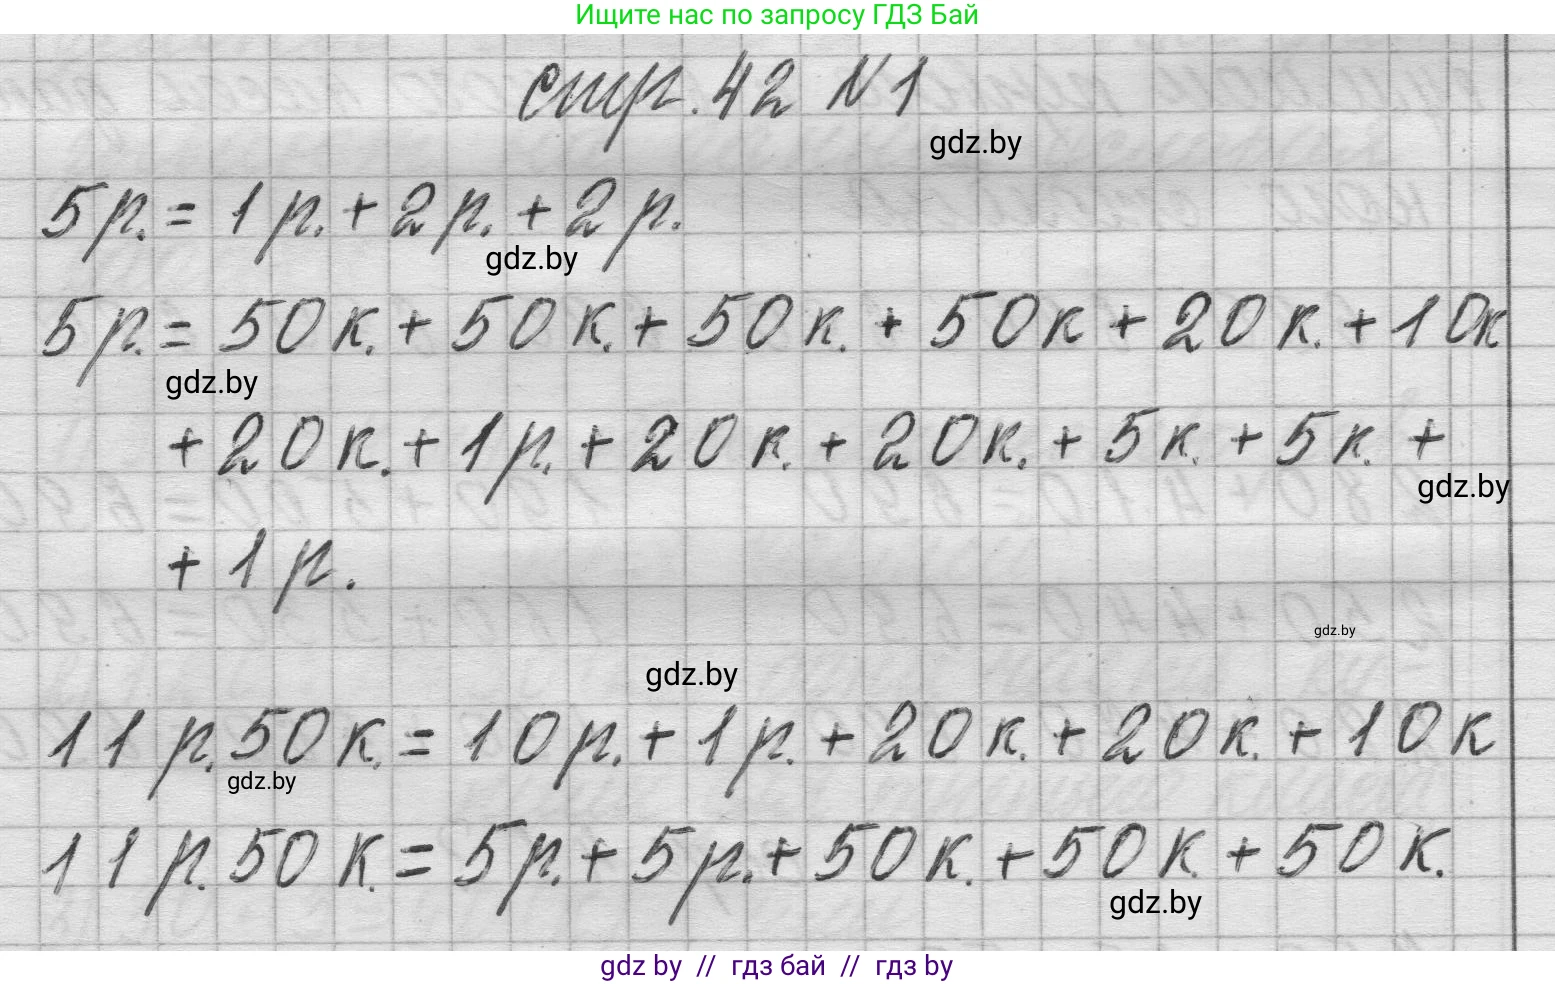 Ищите нас по запросу ГДЗ Бай
стр. 42 №1
gdz.by
5 р. = 1 р. + 2 р. + 2 р.
gdz.by
5 р. = 50 к. + 50 к. + 50 к. + 50 к + 20 к. + 10к
gdz.by
+ 20 к. + 1 р. + 20 к. + 20 к. + 5 к. + 5 к. +
gdz.by
+ 1 р.
gdz.by
gdz.by
11 р. 50 к. = 10 р. + 1 р. + 20 к. + 20 к. + 10 к
gdz.by
11 р. 50 к. = 5 р. + 5 р. + 50 к. + 50 к. + 50 к.
gdz.by
gdz by // гдз бай // гдз by